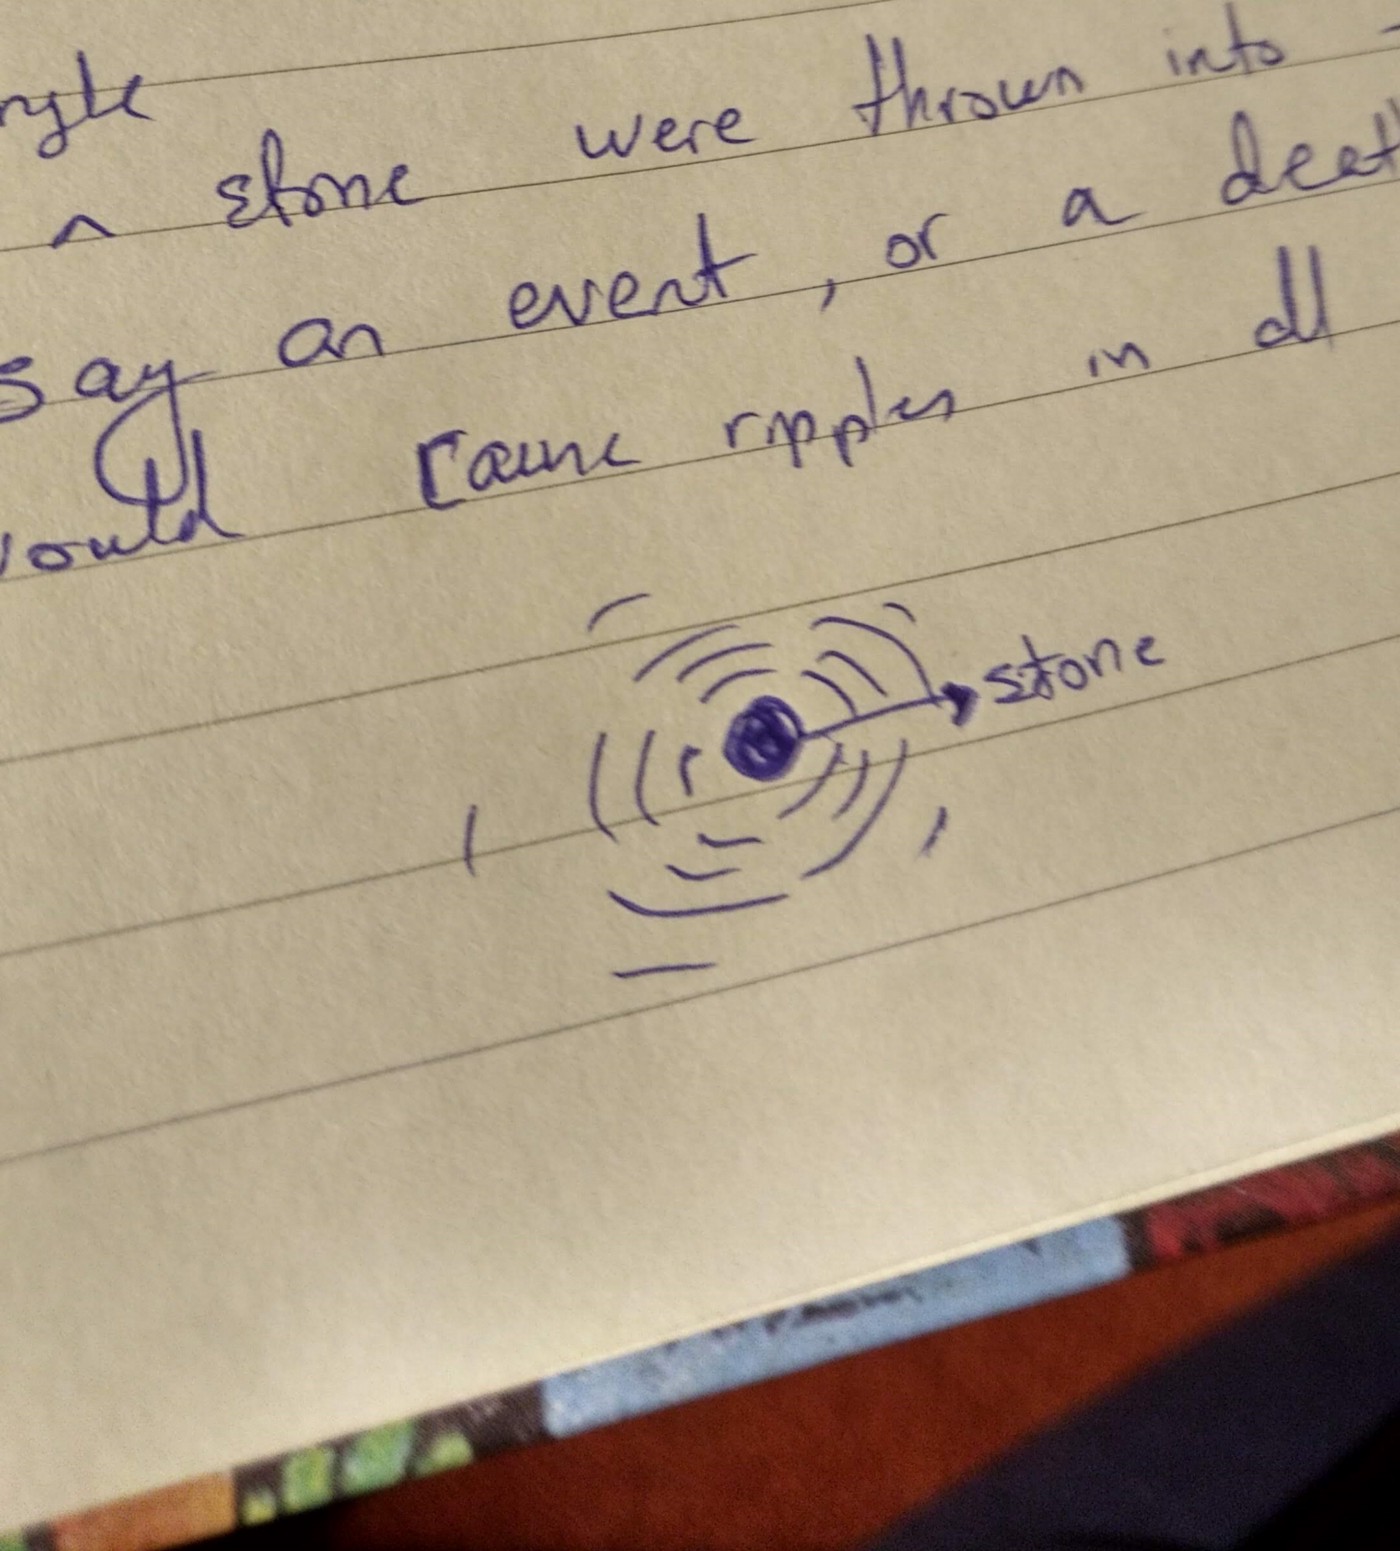 a stone were thrown into
say an event, or a deat
would cause ripples in all
stone